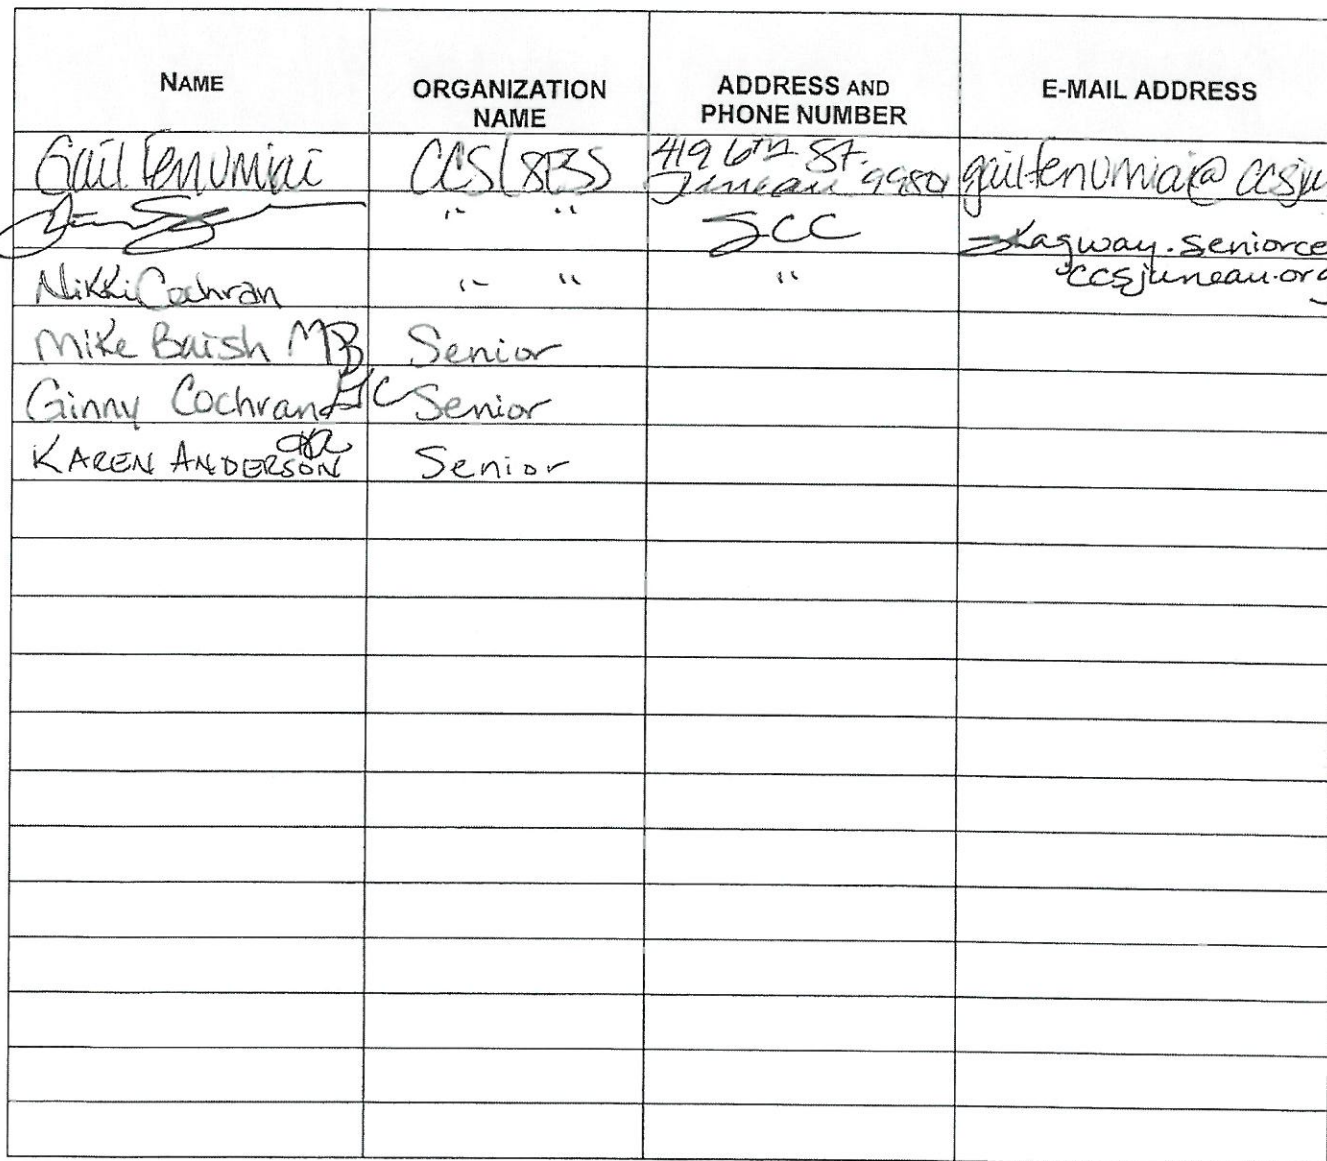 NAME
ORGANIZATION
NAME
ADDRESS AND
PHONE NUMBER
E-MAIL ADDRESS
Gail Fenumiai CCS/SESS 419 6th St.
Juneau 99801 gail.fenumiai@ccsju
" " SCC Skagway.seniorce
Nikki Cochran " " " ccsjuneau.org
Mike Baish MB Senior
Ginny Cochran GC Senior
KAREN ANDERSON KA Senior